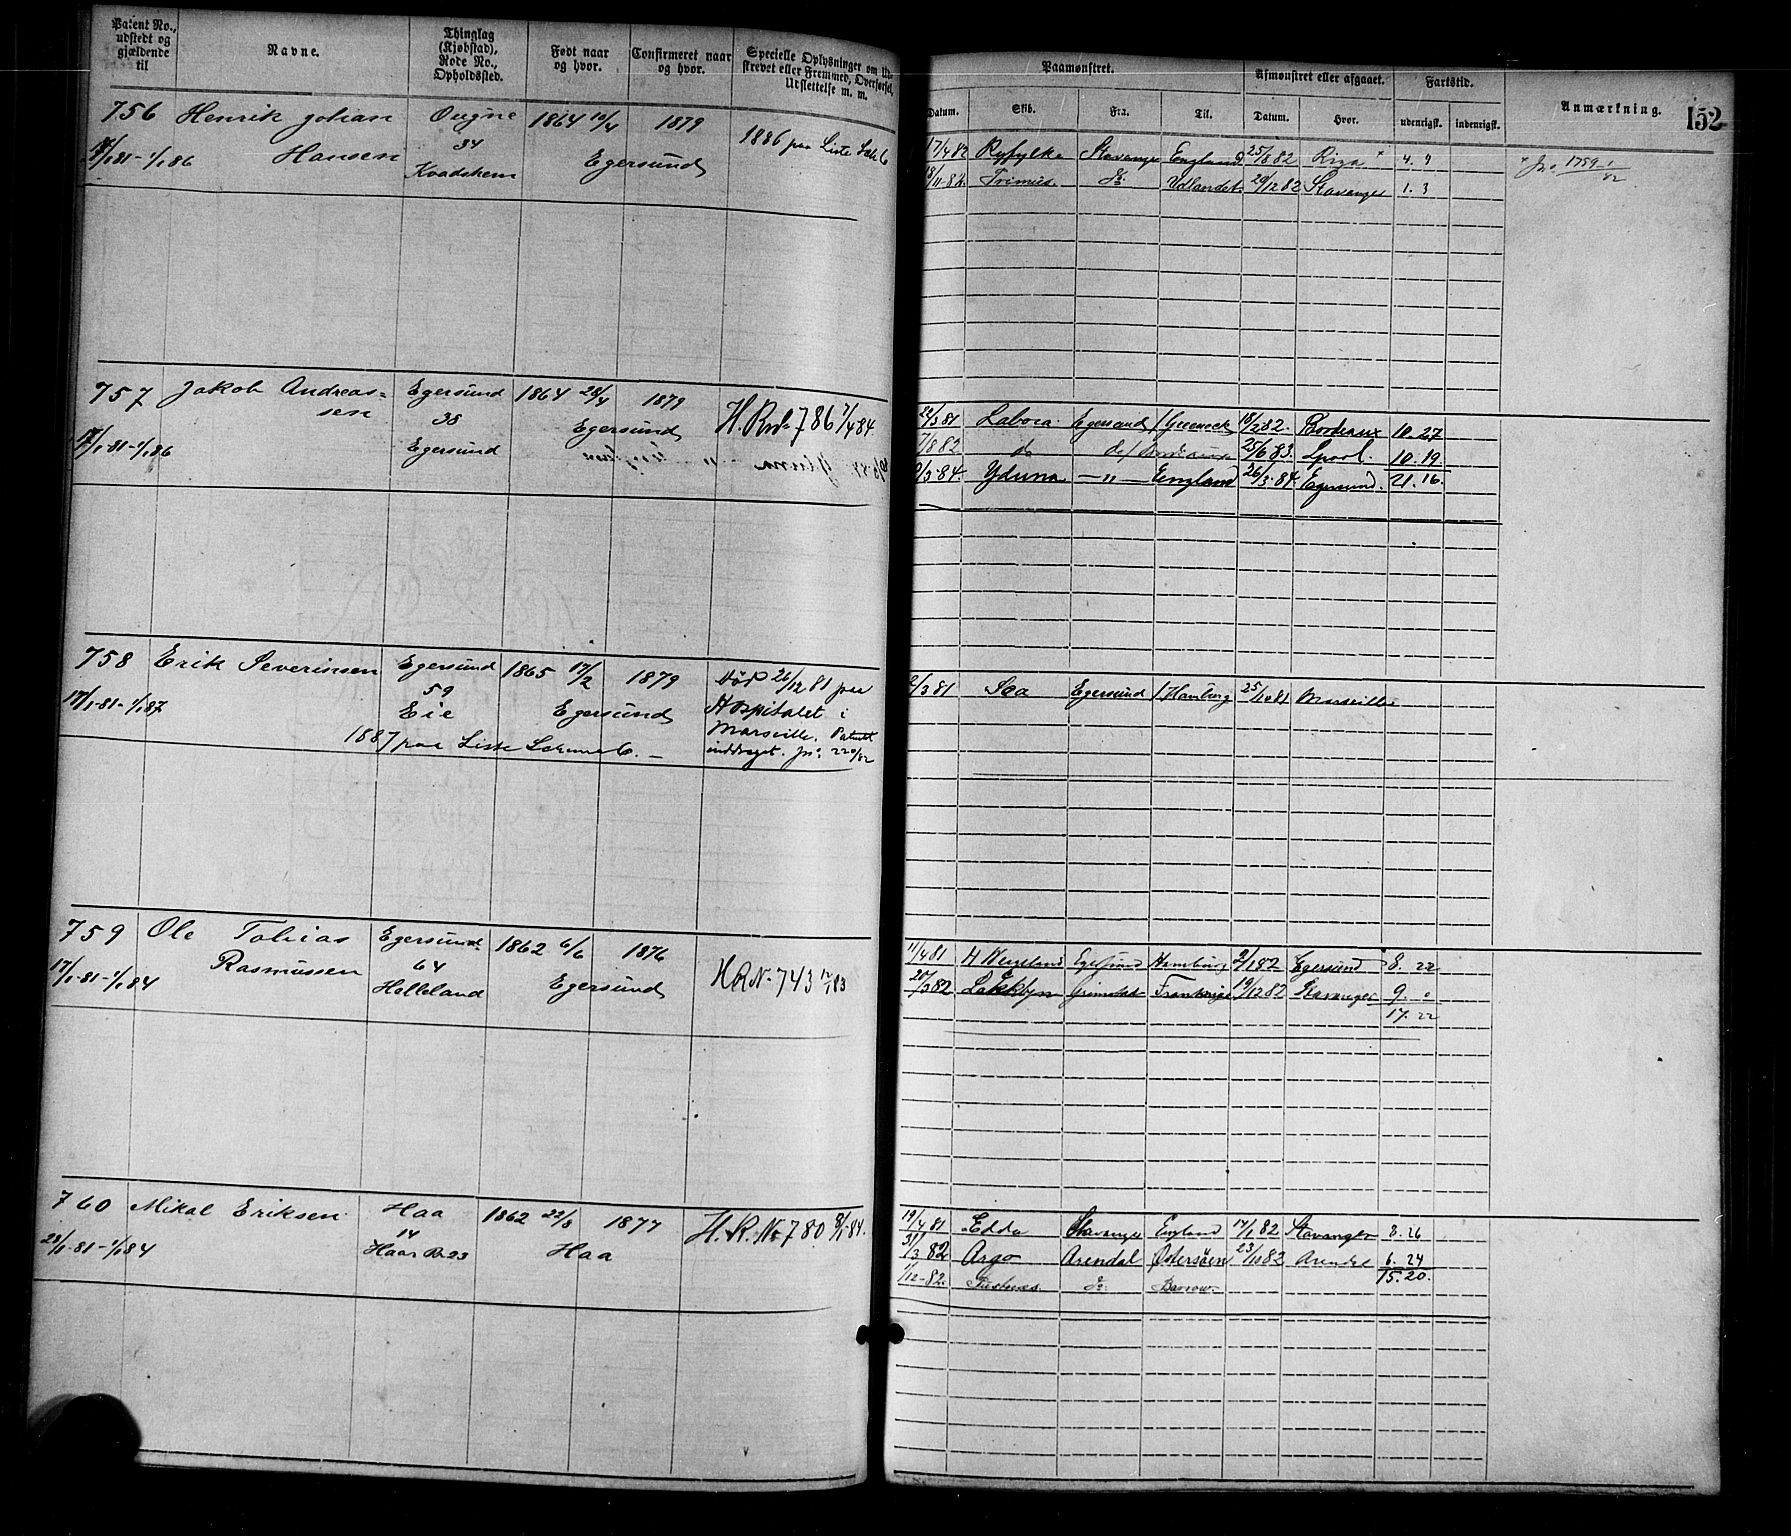 Patent No., udstedt og gjældende til
Navne.
Thinglag (Kjøbstad), Rode No., Opholdssted.
Født naar og hvor.
Confirmeret naar og hvor.
Specielle Oplysninger om Ud-
skrevet eller Fremmed, Overførsel,
Udslettelse m. m.
Paamønstret.
Afmønstret eller afgaaet.
Fartstid.
Anmærkning.
152
Datum. Skib. Fra. Til. Datum. Hvor. udenrigsk. indenrigsk.
756 Henrik Johan Ougne 1864 10/4 1879 1886 paa Liste
Hansen 34 Egersund
/1 81 - 1/1 86 Kvadshem
17/4 82 Ryfylke Stavanger England 25/8 82 Riga 4. 9
18/11-82 Primus do Udlandet 20/12 82 Stavanger 1. 3
757 Jakob Andreas- Egersund 1864 28/4 1879 H.R.No 786 7/1 84.
sen 38 Egersund
17/1-81-1/1 86 Egersund
22/3 81 Labora Egersund Greenock 18/2 82. Bordeaux 10. 27
7/8 82 do do 25/6 83. Lpool. 10. 19
/3-84. Yduna — " — England 26/3-84. Egersund. 21. 16.
758 Erik Severinsen Egersund 1865 17/2 1879 Død 26/12 81 paa
59 Hospitalet i
17/1-81-1/1 87 Eie Egersund Marseille. Patent
1887 paa Liste inddraget. Jn: 220/82
2/3 81 Saa Egersund Hamburg 25/10 81 Marseille
759 Ole Tobias Egersund 1862 6/6 1876
Rasmussen 64 H R N- 743 12/1 83
17/1-81-1/1 84 Helleland Egersund
11/4 81 H Wergeland Egersund Hamburg 2/1 82 Egersund 8. 22
20/3 82 Grimstad Frankrige 19/12 82 Stavanger 9. 0
17. 22
760 Mikal Eriksen Haa 1862 22/8 1877 H. R. No 780 8/1-84.
14
28/1-81-1/1 84 Haar Br 23 Haa
19/4 81 Edda Stavanger England 14/1 82 Stavanger 8. 26
31/3 82 Argo Arendal Østersøen 23/10 82 Arendal 6. 24
15. 20.
1/12-82. do Barrow